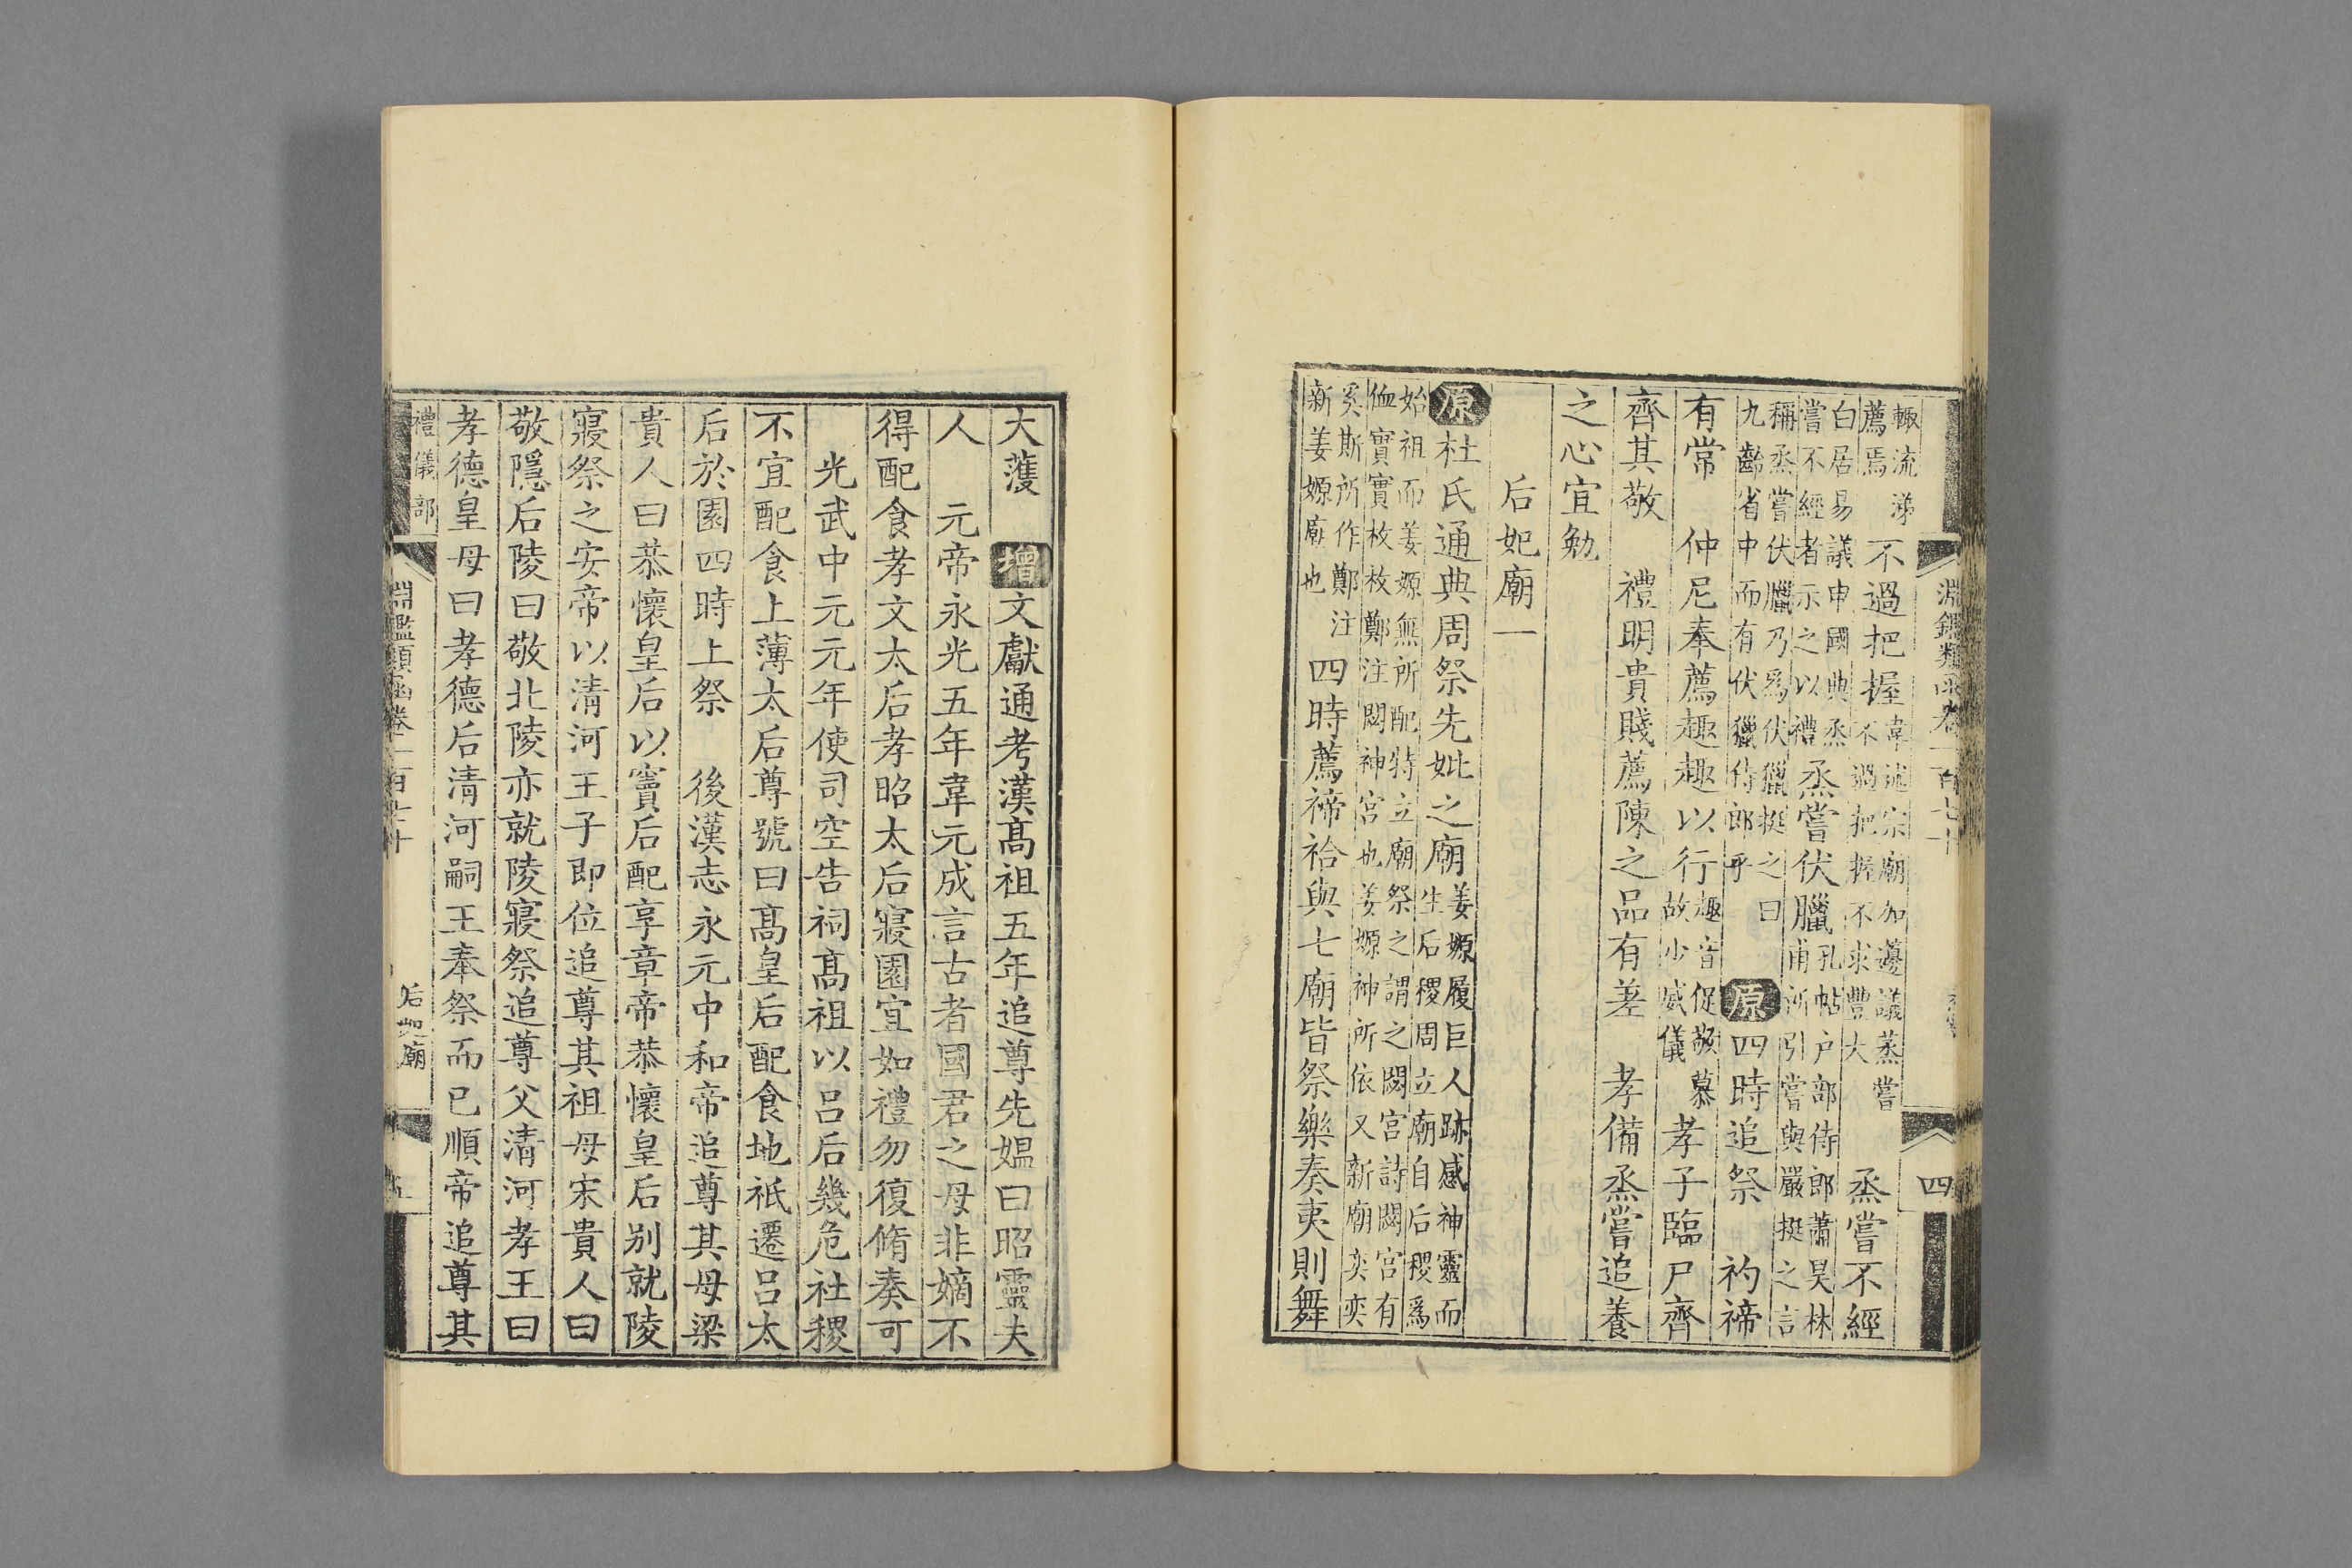 輙流涕
薦焉
不過把握
韋述宗廟加籩議蒸嘗
不過把握不求豐大
烝嘗不經
白居易議申國典烝
嘗不經者示之以禮
烝嘗伏臘
孔帖户部侍郎蕭炅林
甫所引嘗與嚴挺之言
稱烝嘗伏臘乃爲伏獵挺之曰
九齡省中而有伏獵侍郎乎
原四時追祭 礿禘
有常 仲尼奉薦趣趣以行
趣音促敬慕
故少威儀
孝子臨尸齊
齊其敬 禮明貴賤薦陳之品有差 孝備烝嘗追養
之心宜勉
后妃廟一
原杜氏通典周祭先妣之廟
姜嫄履巨人跡感神靈而
生后稷周立廟自后稷爲
始祖而姜嫄無所配特立廟祭之謂之閟宫詩閟宫有
侐實實枚枚鄭注閟神宫也姜嫄神所依又新廟奕奕
奚斯所作鄭注
新姜嫄廟也
四時薦禘祫與七廟皆祭樂奏夷則舞
淵鑑類函卷一百七十
四
大濩 增文獻通考漢髙祖五年追尊先媼曰昭靈夫
人 元帝永光五年韋元成言古者國君之母非嫡不
得配食孝文太后孝昭太后寢園宜如禮勿復脩奏可
光武中元元年使司空告祠髙祖以吕后幾危社稷
不宜配食上薄太后尊號曰髙皇后配食地祇遷吕太
后於園四時上祭 後漢志永元中和帝追尊其母梁
貴人曰恭懷皇后以竇后配享章帝恭懷皇后别就陵
寢祭之安帝以清河王子即位追尊其祖母宋貴人曰
敬隱后陵曰敬北陵亦就陵寢祭追尊父清河孝王曰
孝德皇母曰孝德后清河嗣王奉祭而已順帝追尊其
禮儀部
淵鑑類函卷一百七十
后妃廟
五